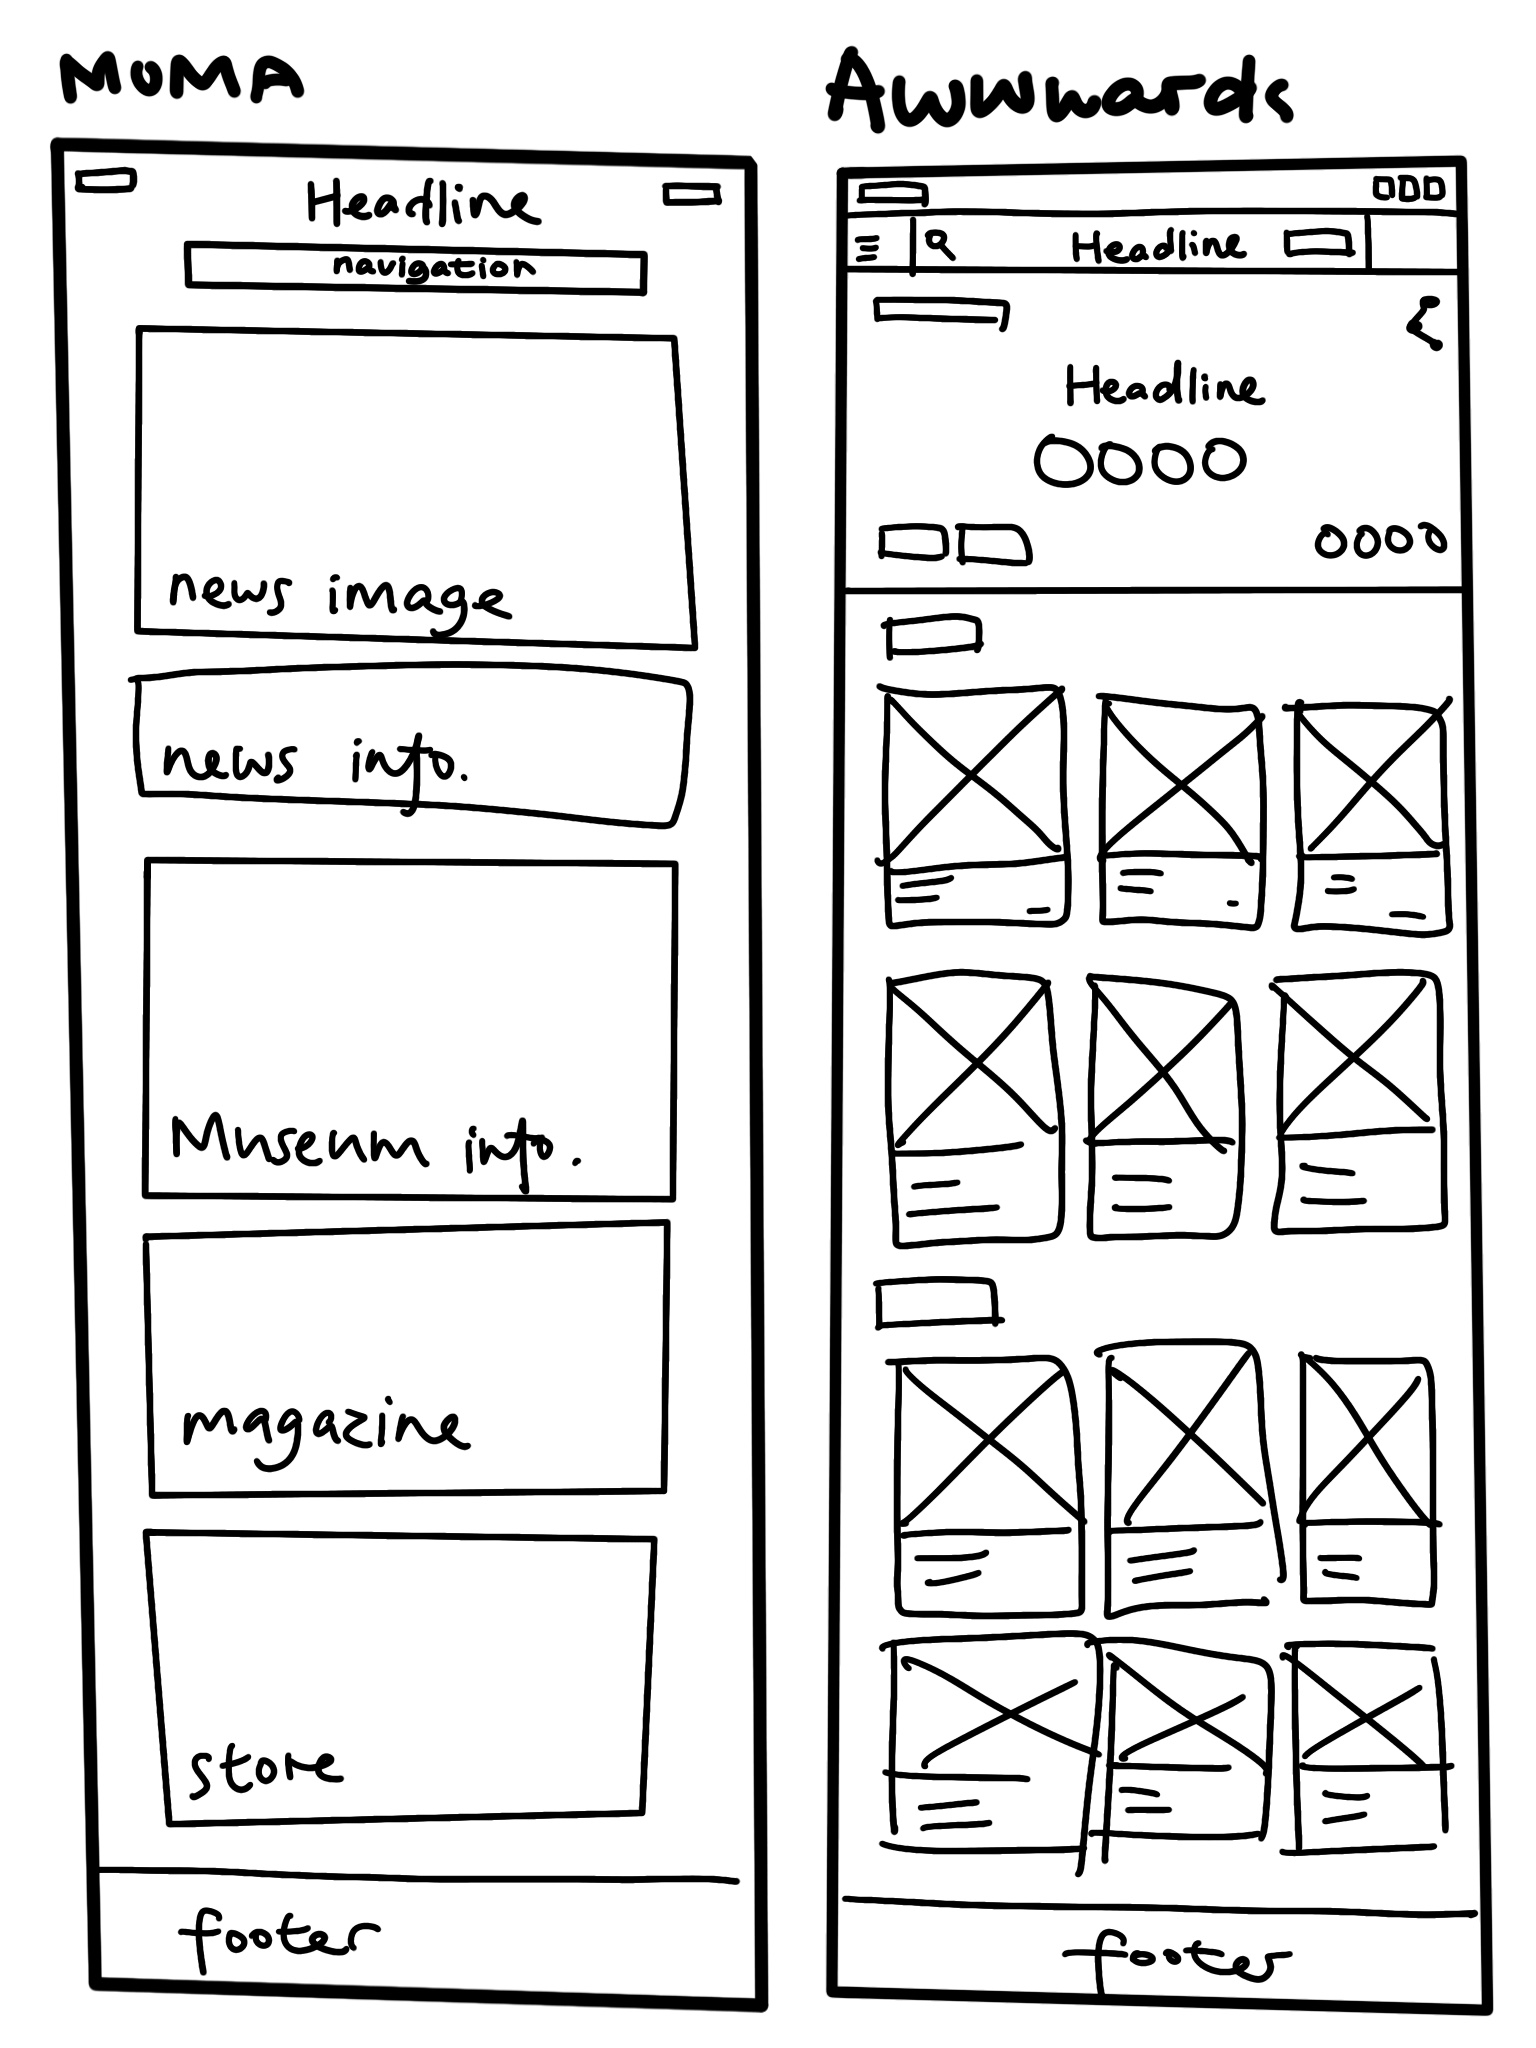 MoMA
Headline
navigation
news image
news info.
Museum info.
magazine
store
footer
Awwwards
Headline
Headline
footer